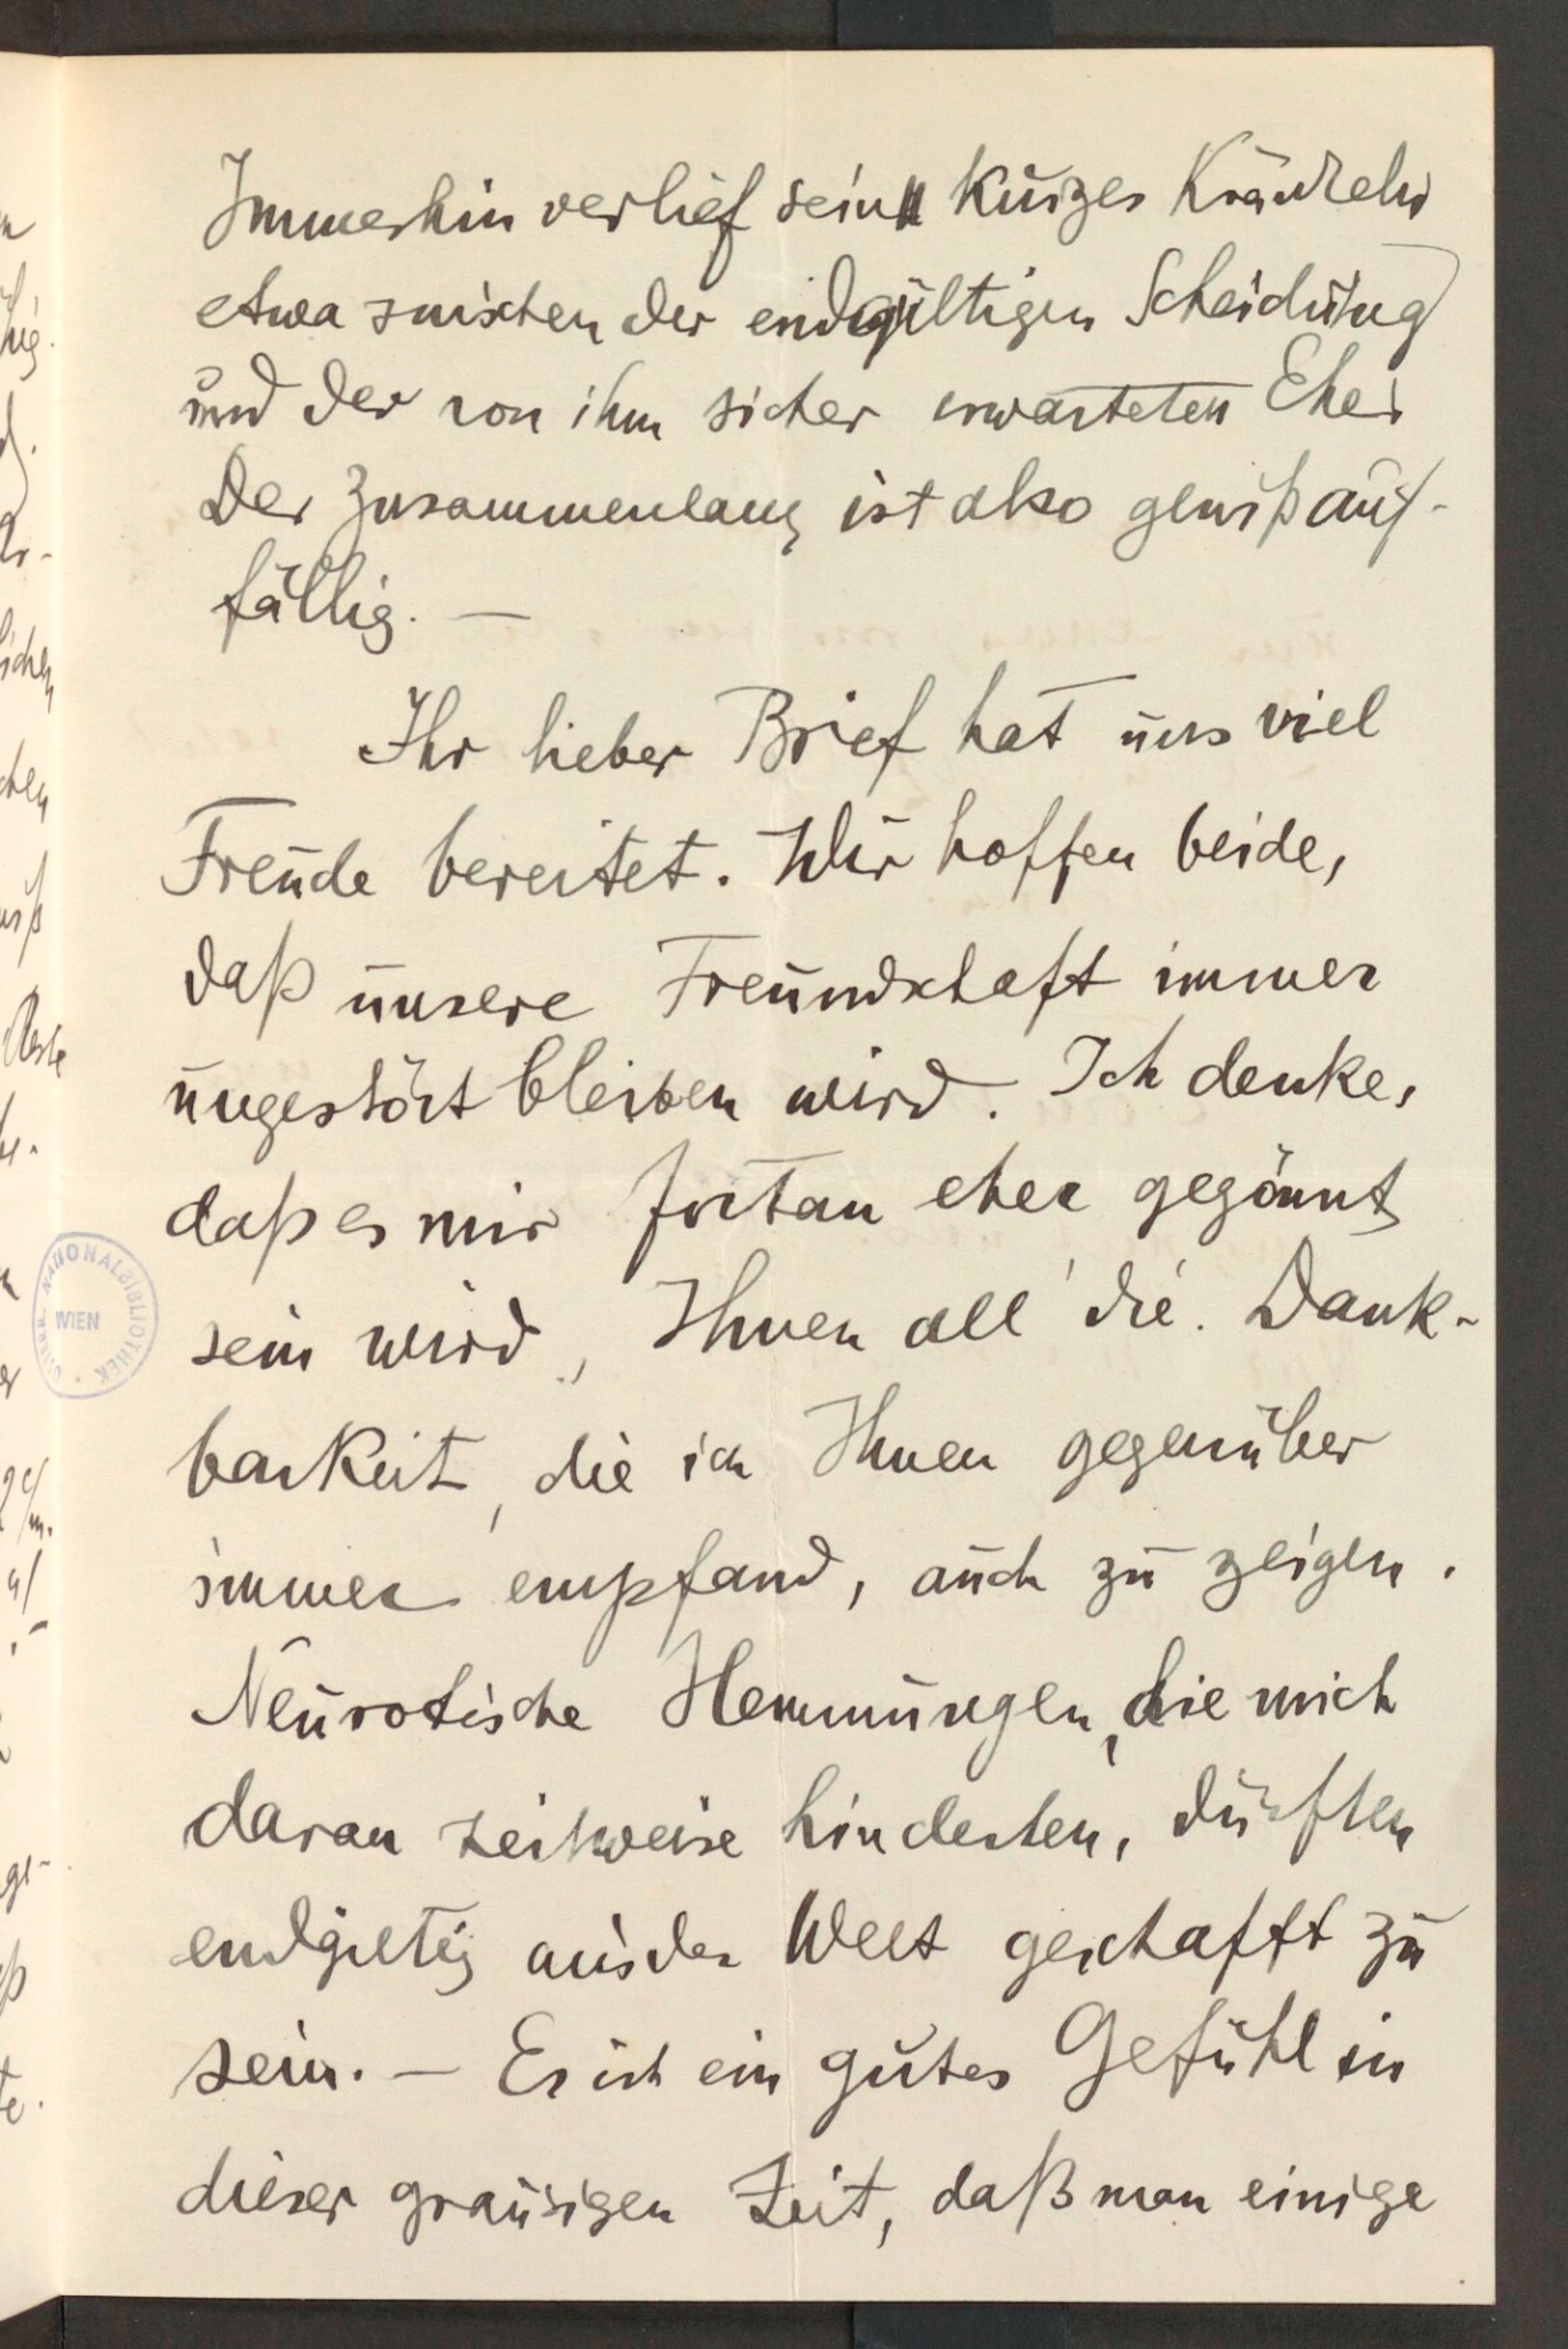 Immerhin verlief sein kurzes Kränkeln
etwa zwischen der endgültigen Scheidung
und der von ihm sicher erwarteten Ehe.
Der Zusammenhang ist also gewiß auf-
fällig. —
Ihr lieber Brief hat uns viel
Freude bereitet. Wir hoffen beide,
daß unsere Freundschaft immer
ungestört bleiben wird. Ich denke,
daß es mir fortan eher gegönnt
sein wird, Ihnen all' die Dank-
barkeit, die ich Ihnen gegenüber
immer empfand, auch zu zeigen.
Neurotische Hemmungen, die mich
daran zeitweise hinderten, dürften
endgültig aus der Welt geschafft zu
sein. — Es ist ein gutes Gefühl in
dieser grausigen Zeit, daß man einige
ÖSTERR. NATIONALBIBLIOTHEK · WIEN